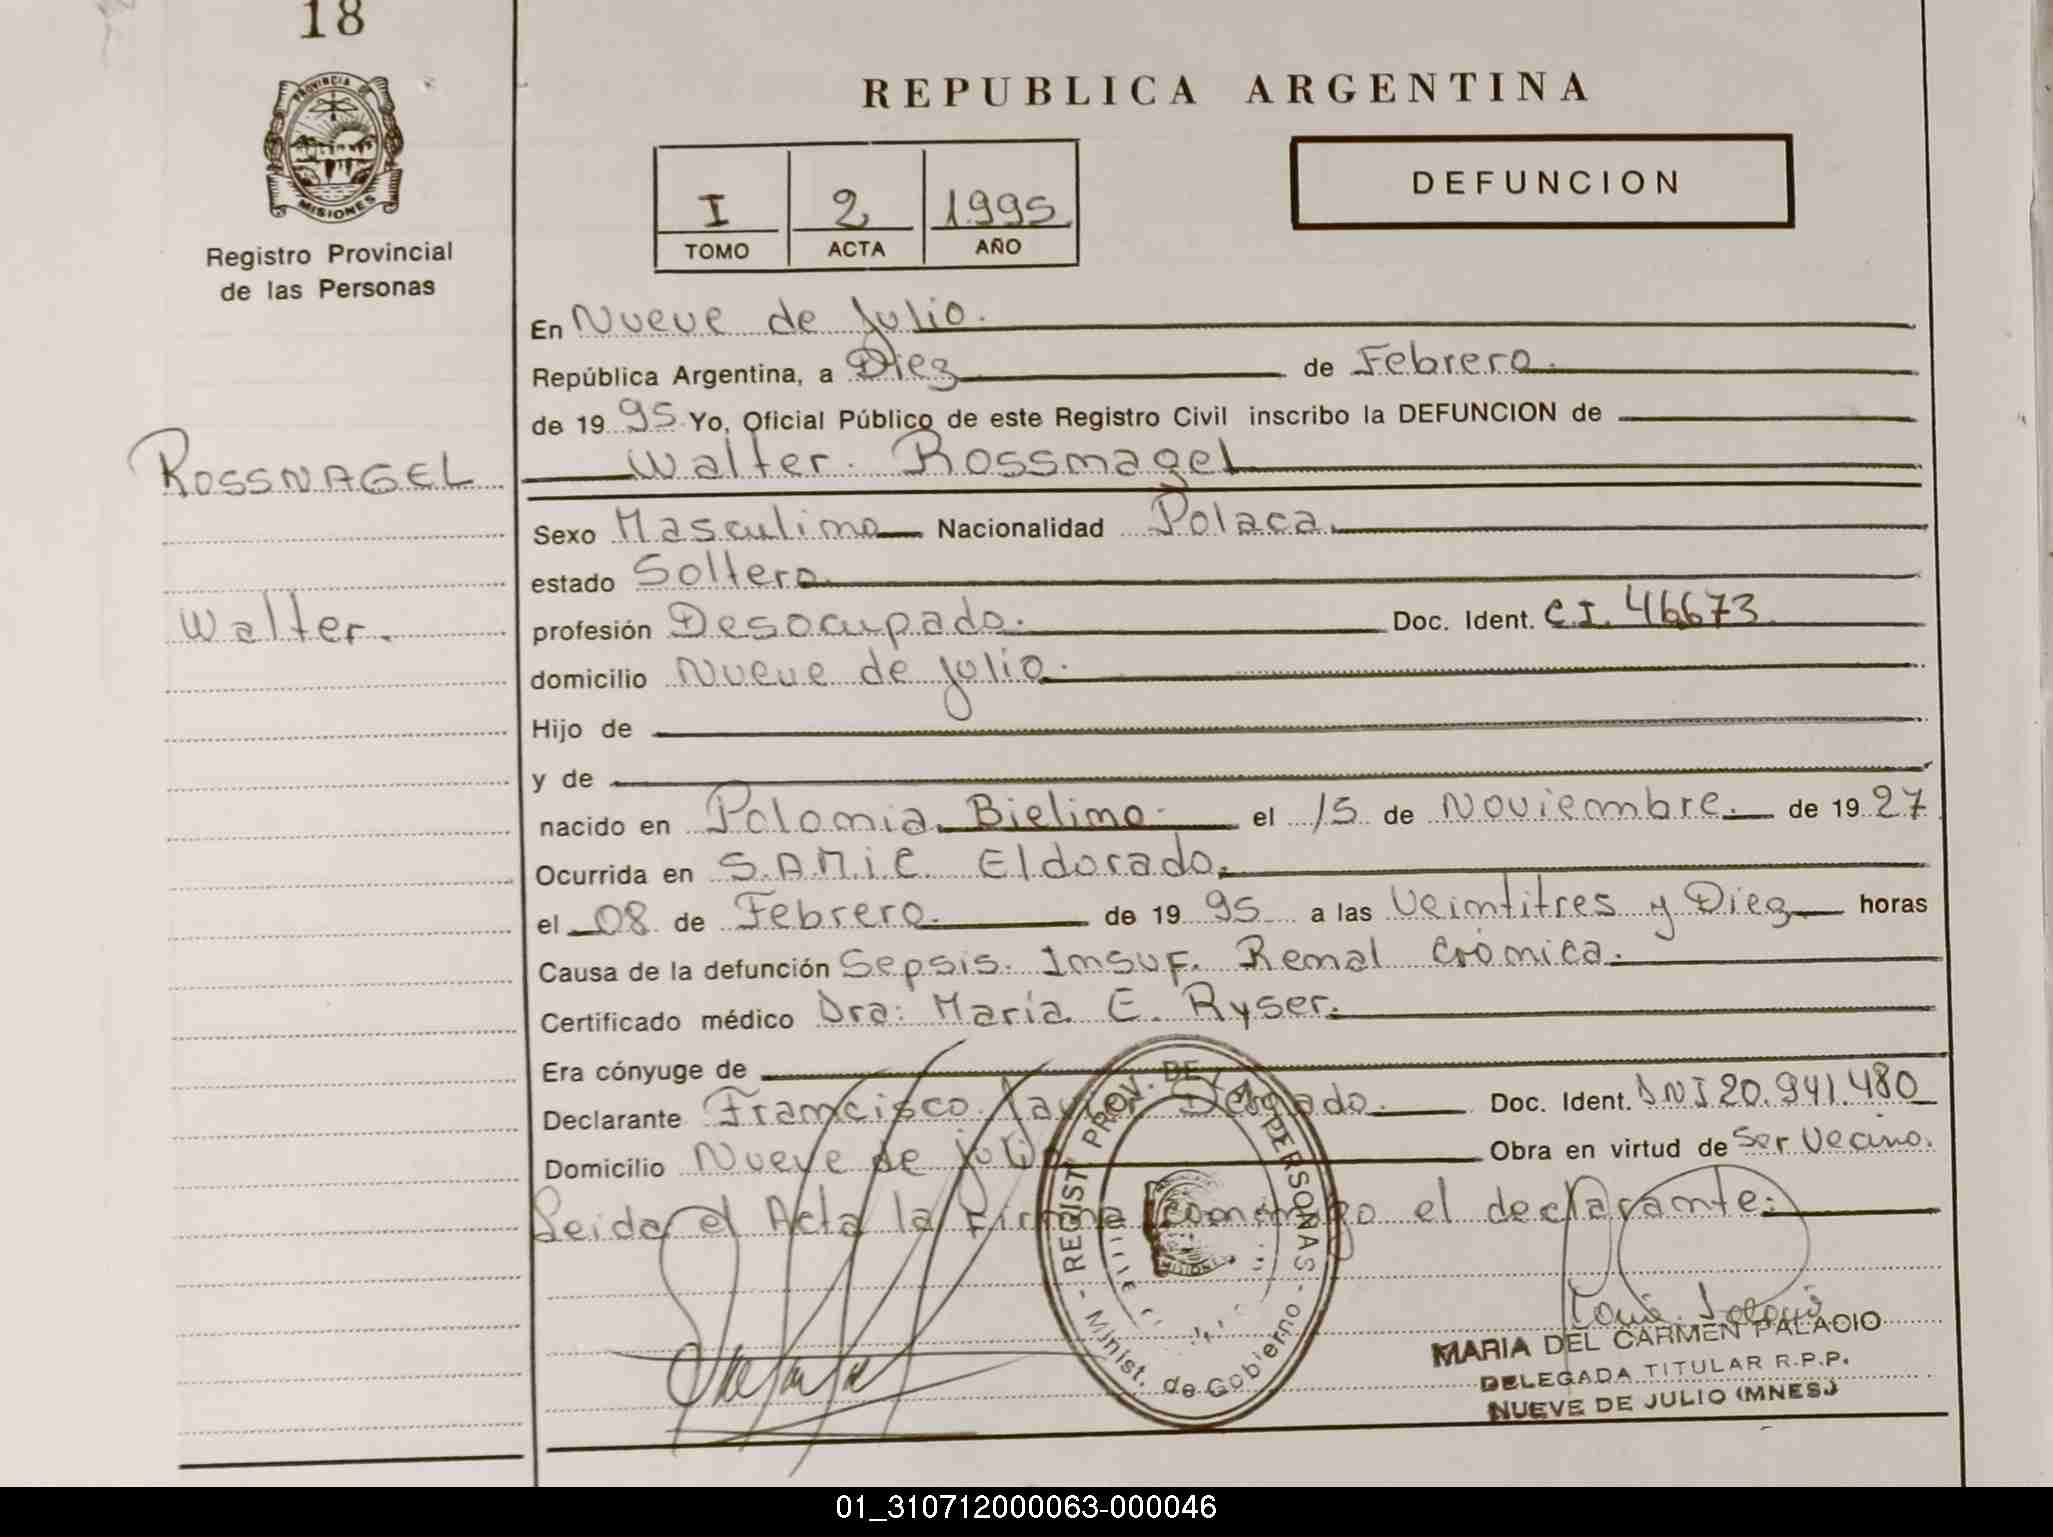 18
PROVINCIA DE
MISIONES
Registro Provincial
de las Personas
ROSSNAGEL
Walter.
REPUBLICA ARGENTINA
I 2 1995
TOMO ACTA AÑO
DEFUNCION
En Nueve de Julio.
República Argentina, a Diez de Febrero.
de 19 95 Yo, Oficial Público de este Registro Civil inscribo la DEFUNCION de
Walter. Rossnagel
Sexo Masculino Nacionalidad Polaca.
estado Soltero
profesión Desocupado. Doc. Ident. C.I. 46673.
domicilio Nueve de julio.
Hijo de
y de
nacido en Polonia. Bielino. el 15 de Noviembre. de 19 27
Ocurrida en S.A.M.i.C. Eldorado.
el 08 de Febrero. de 19 95 a las Veintitres y Diez horas
Causa de la defunción Sepsis. Insuf. Renal Crónica.
Certificado médico Dra: María E. Ryser.
Era cónyuge de
Declarante Francisco Javier Delgado. Doc. Ident. DNI 20.941.480
Domicilio Nueve de julio Obra en virtud de Ser Vecino.
Leida el Acta la Firma conmigo el declarante:
REGIST. PROV. DE LAS PERSONAS
Minist. de Gobierno
MISIONES
MARIA DEL CARMEN PALACIO
DELEGADA TITULAR R.P.P.
NUEVE DE JULIO (MNES)
01_310712000063-000046